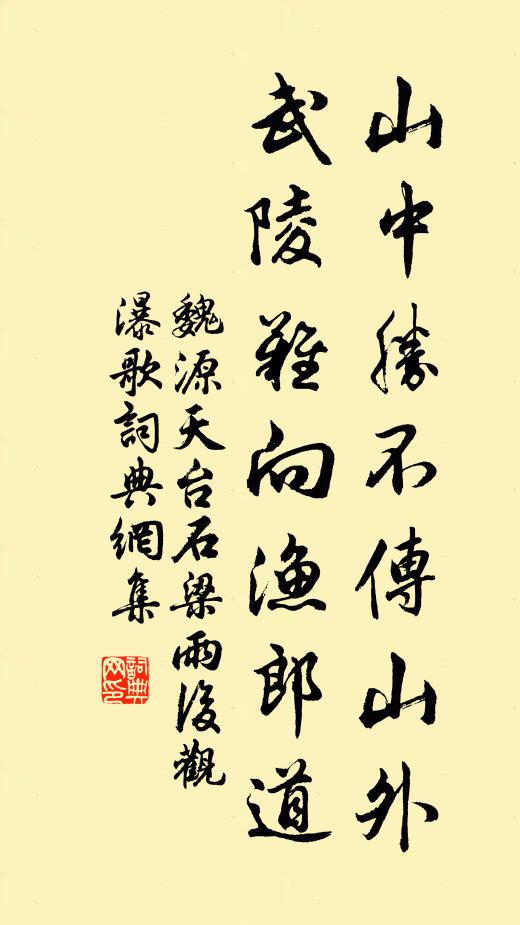 山中勝不傳山外
武陵難向漁郎道
魏源天台石梁雨後觀
瀑歌詞典網集
詞典
网印